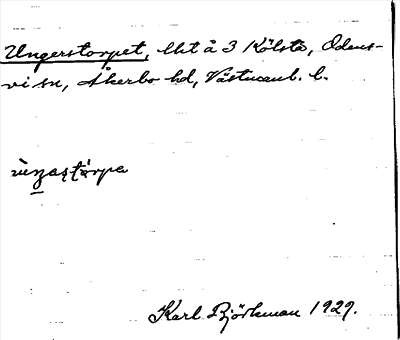 Ungerstorpet, lht å 3 Kölsta, Odens-
vi sn, Åkerbo hd, Västmanl. l.
ùŋaştórpa
Karl Björkman 1929.